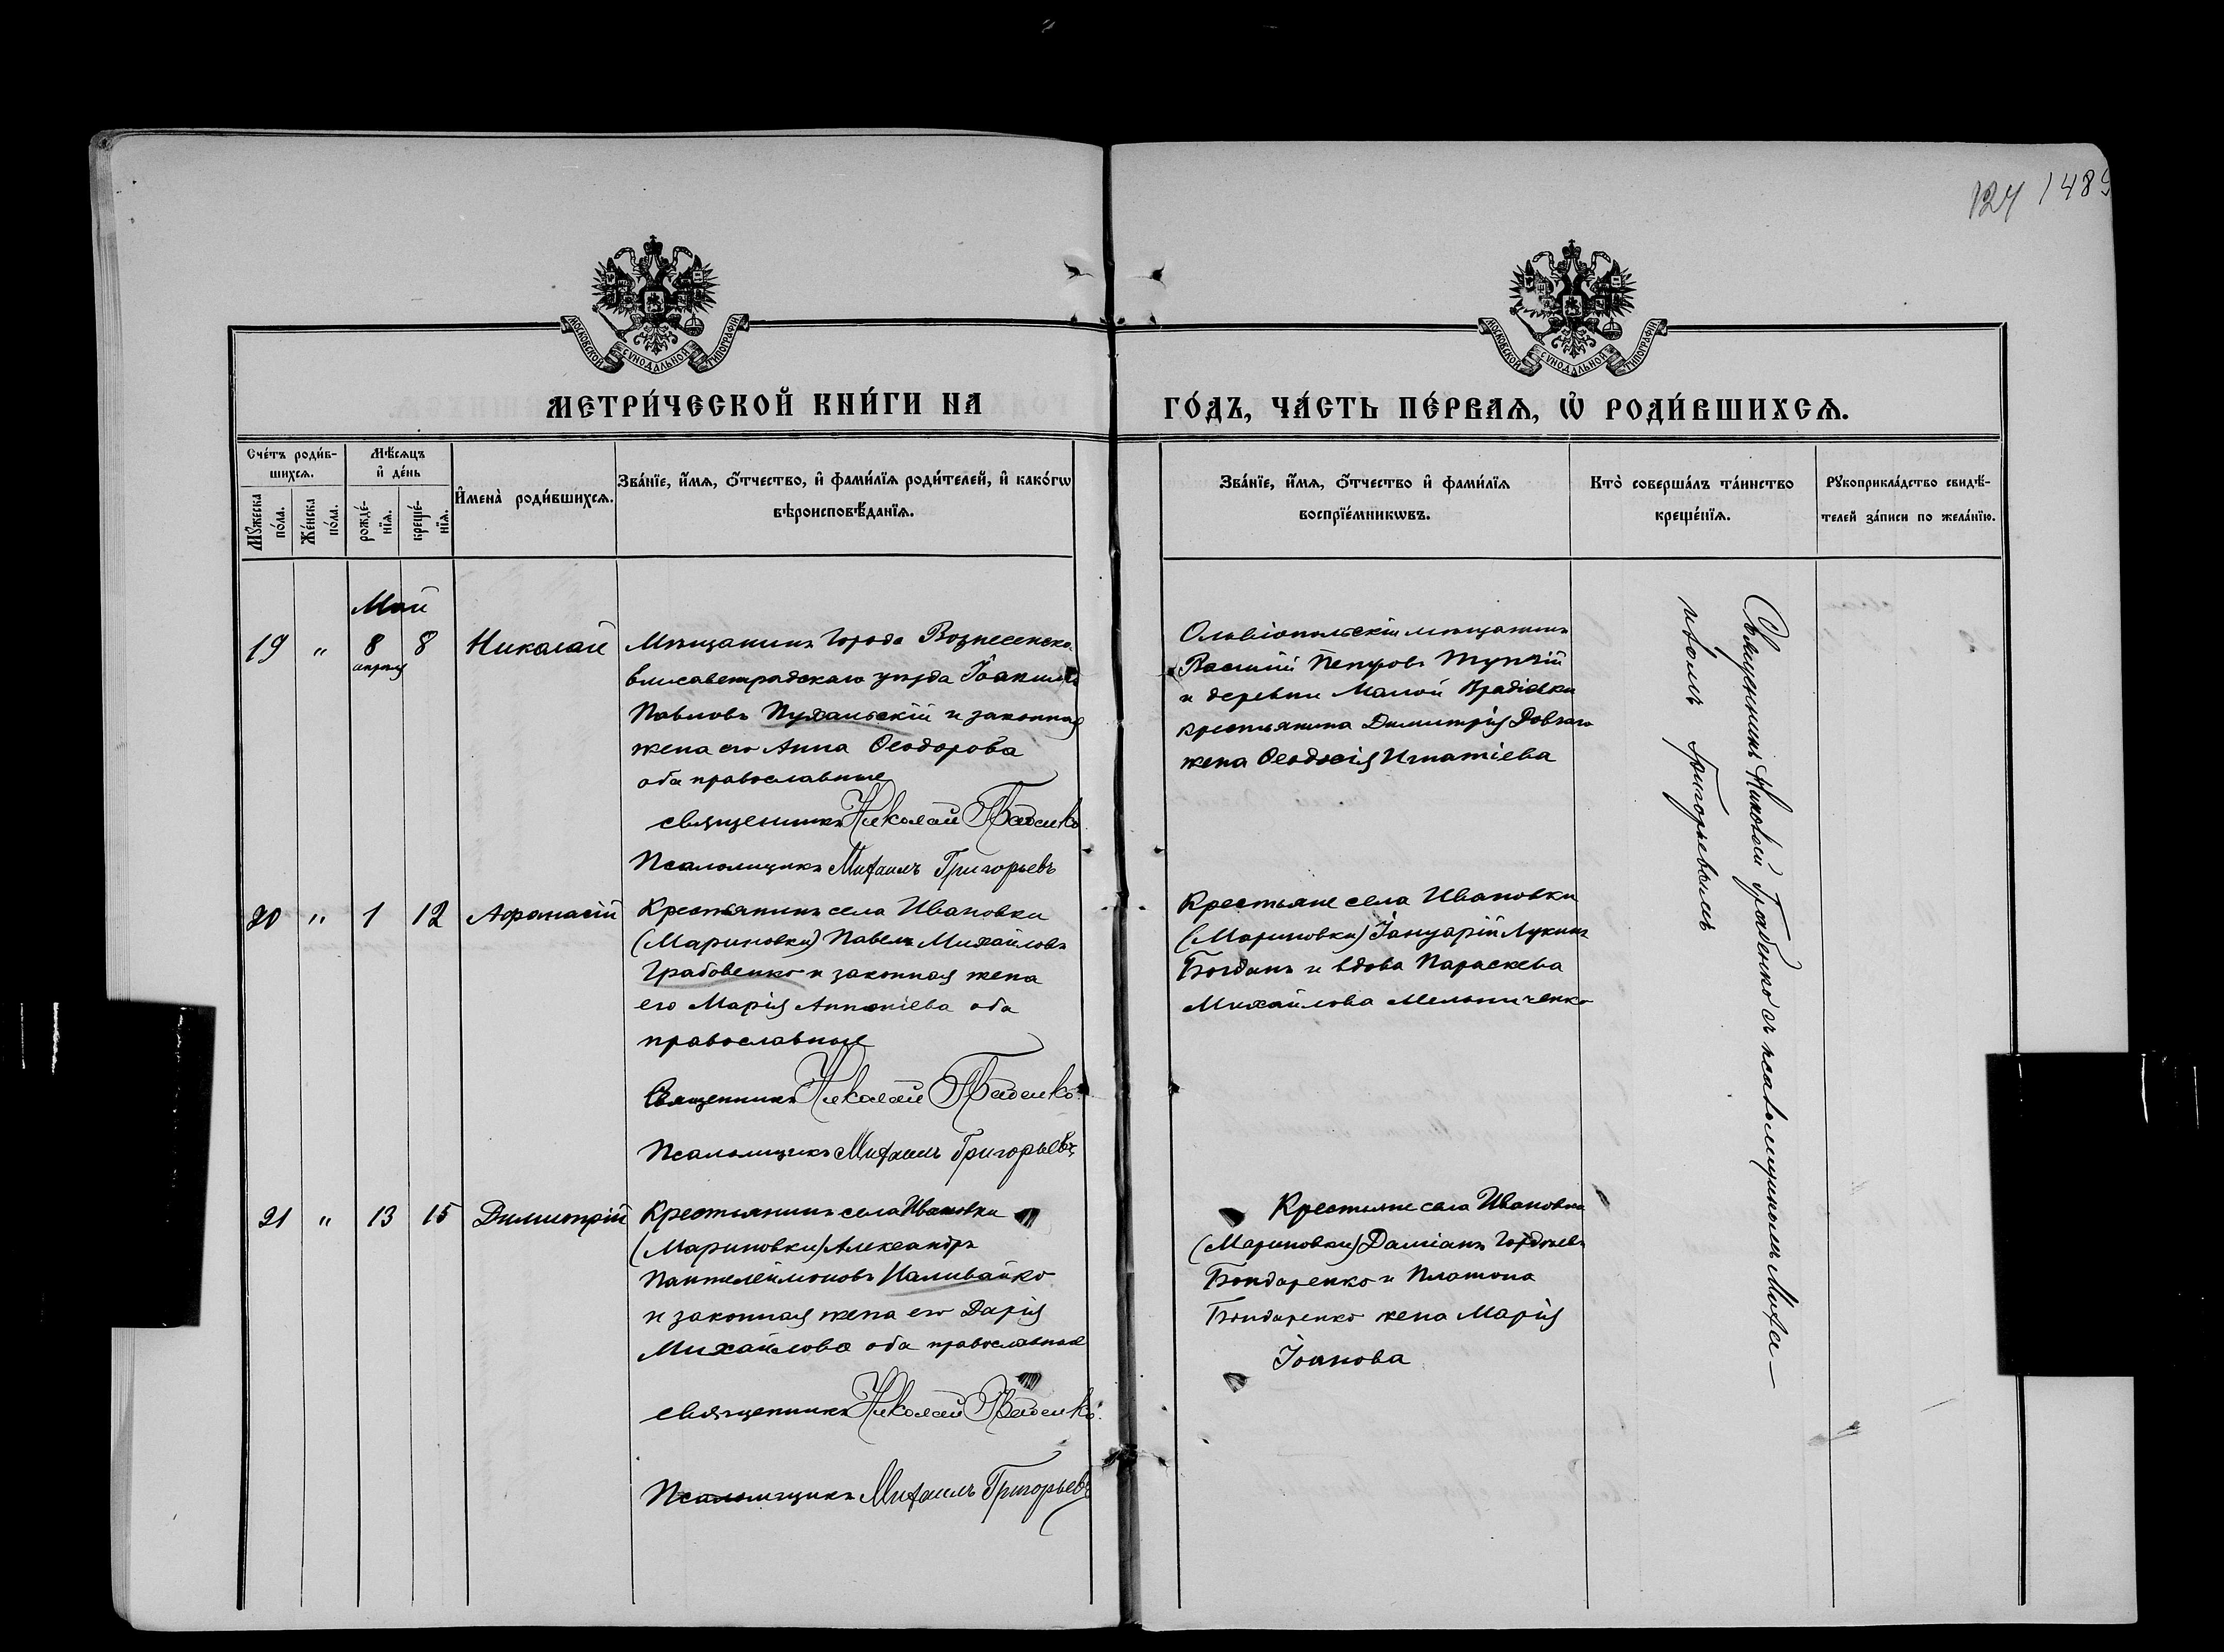 124 1489
МОСКОВСКОЙ СѴНОДАЛЬНОЙ ТИПОГРАФІИ
МОСКОВСКОЙ СѴНОДАЛЬНОЙ ТИПОГРАФІИ
МЕТРИ́ЧЕСКОЙ КНИ́ГИ НА
ГО́ДЪ, ЧА́СТЬ ПЕ́РВАѦ, Ѡ҆ РОДИ́ВШИХСѦ.
Сче́тъ роди́вшихсѧ.
Мꙋ́жеска по́ла.
Же́нска по́ла.
Мѣ́сѧцъ и҆ де́нь
рожде́нїѧ.
креще́нїѧ.
И҆мена̀ роди́вшихсѧ.
Зва́нїе, и҆́мѧ, ѻ҆́тчество, и҆ фами́лїѧ роди́телей, и҆ како́гѡ
вѣроисповѣ́данїѧ.
Зва́нїе, и҆́мѧ, ѻ҆́тчество и҆ фами́лїѧ
воспрїе́мникѡвъ.
Кто̀ соверша́лъ та́инство
креще́нїѧ.
Рꙋкоприкла́дство свидѣ́-
телей за́писи по жела́нїю.
Май
19 " 8 апреля 8 Николай
Мѣщанинъ города Вознесенска
Елисаветградскаго уѣзда Іоакимъ
Павловъ Пухальскій и законная
жена его Анна Ѳеодорова
оба православные
священникъ Николай
Псаломщикъ Михаилъ Григорьевъ
Ольвіопольскій мѣщанинъ
Василій Петровъ
и деревни Малой Врадіевки
крестьянина Димитрія Довгаго
жена Ѳеодосія Игнатіева
20 " 1 12 Афанасій
Крестьянинъ села Ивановки
(Мариновки) Павелъ Михайловъ
Грабовенко и законная жена
его Марія Антоніева оба
православные
Священникъ Николай
Псаломщикъ Михаилъ Григорьевъ
Крестьяне села Ивановки
(Мариновки) Іануарій Лукинъ
Богданъ и вдова Параскева
Михайлова Мельниченко
21 " 13 15 Димитрій
Крестьянинъ села Ивановки
(Мариновки) Александръ
Пантелеймоновъ Наливайко
и законная жена его Дарія
Михайлова оба православные
священникъ Николай
Псаломщикъ Михаилъ Григорьевъ
Крестьяне села Ивановки
(Мариновки) Даміанъ Гордѣевъ
Бондаренко и Платона
Бондаренко жена Марія
Іоанова
Священникъ Николай съ псаломщикомъ Михаи-
ломъ Григорьевымъ